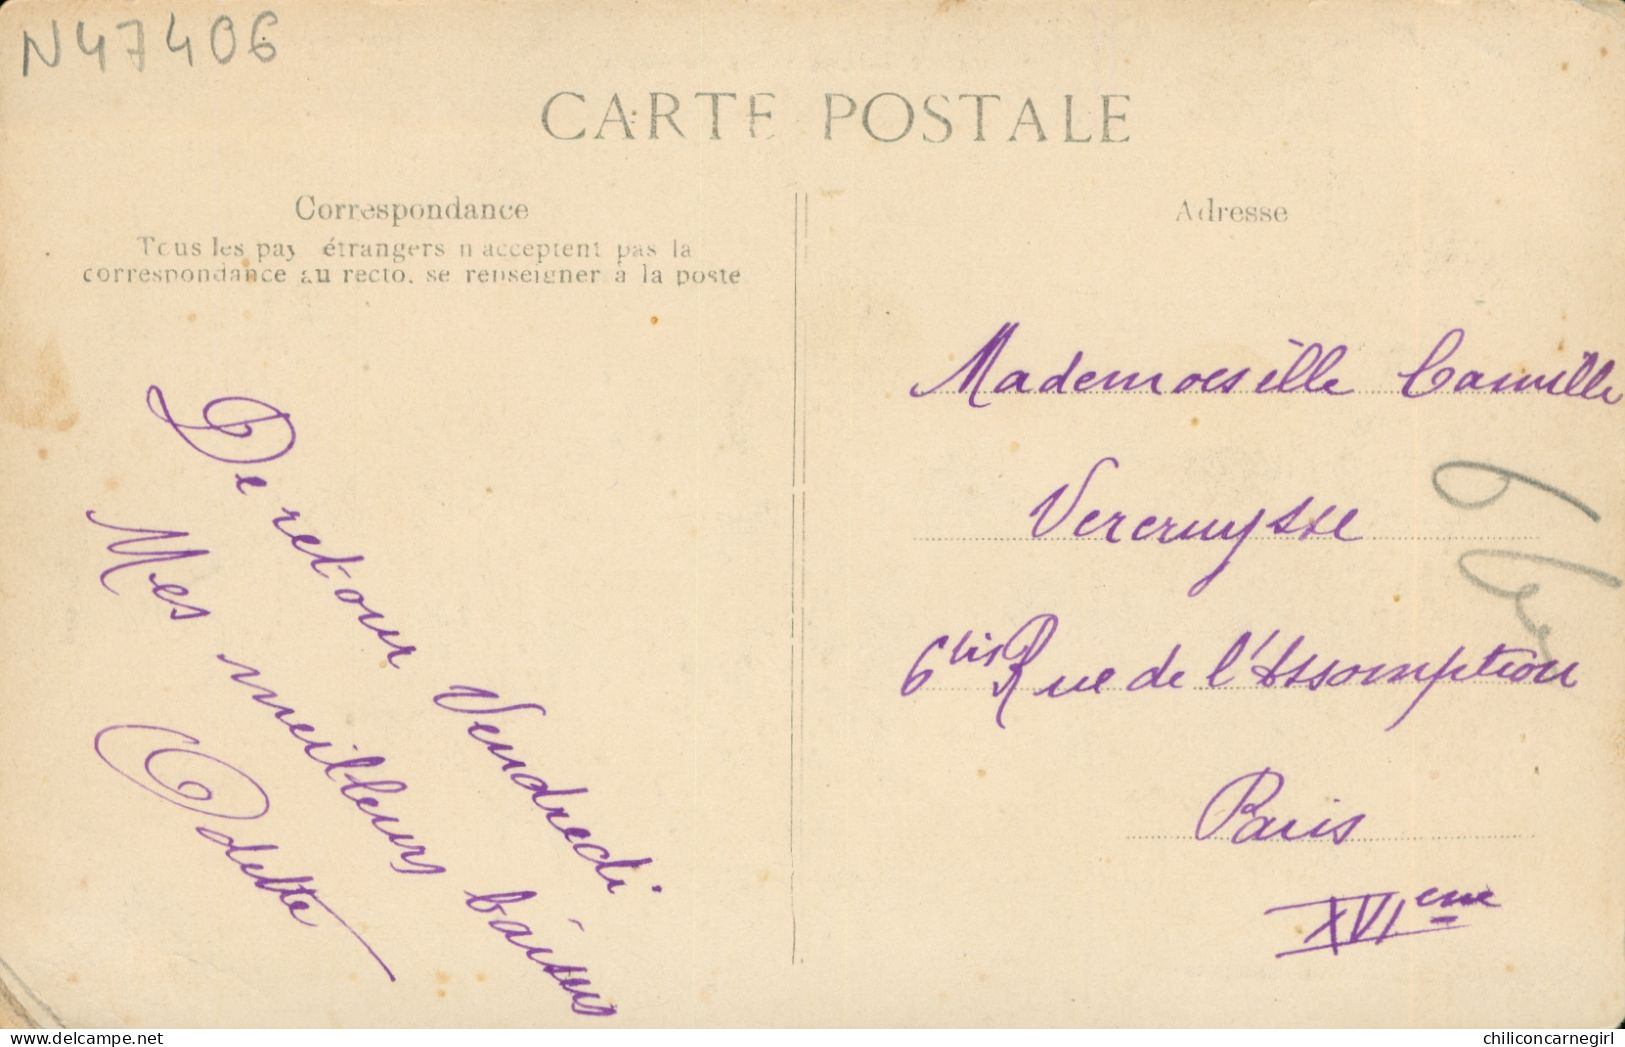 N47406
CARTE POSTALE
Correspondance
Tous les pays étrangers n'acceptent pas la
correspondance au recto, se renseigner à la poste
De retour Vendredi
Mes meilleurs baisers
Odette
Adresse
Mademoiselle Camille
Vercruysse
6 bis Rue de l'Assomption
Paris
XVIeme
chiliconcarnegirl